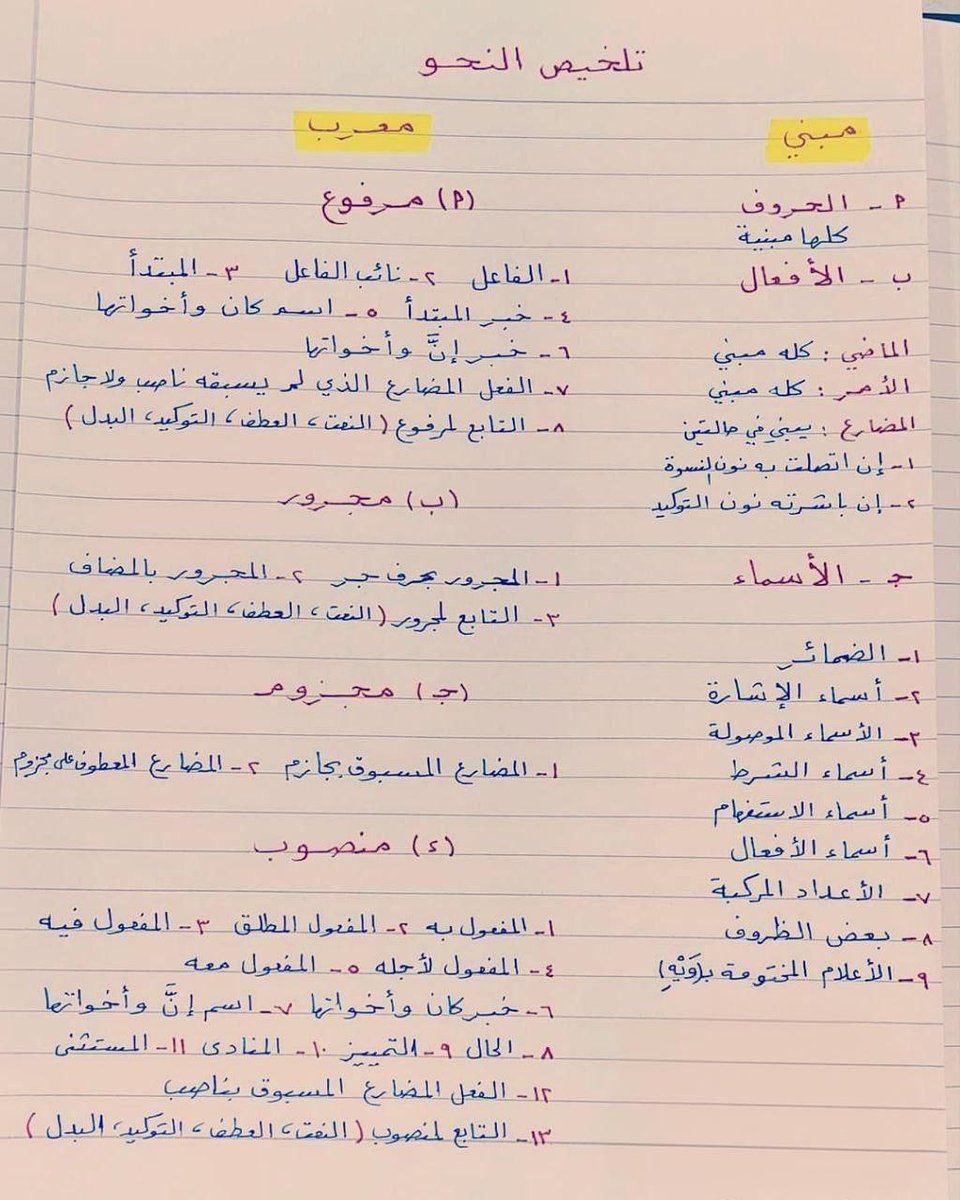 تلخيص النحو
مبني
أ - الحروف
كلها مبنية
ب - الأفعال
الماضي : كله مبني
الأمر : كله مبني
المضارع : يبنى في حالتين
١- إن اتصلت به نون النسوة
٢- إن باشرته نون التوكيد
جـ - الأسماء
١- الضمائر
٢- أسماء الإشارة
٣- الأسماء الموصولة
٤- أسماء الشرط
٥- أسماء الاستفهام
٦- أسماء الأفعال
٧- الأعداد المركبة
٨- بعض الظروف
٩- الأعلام المختومة بـ(وَيْهِ)
معرب
(أ) مرفوع
١- الفاعل ٢- نائب الفاعل ٣- المبتدأ
٤- خبر المبتدأ ٥- اسم كان وأخواتها
٦- خبر إنَّ وأخواتها
٧- الفعل المضارع الذي لم يسبقه ناصب ولا جازم
٨- التابع لمرفوع (النعت، العطف، التوكيد، البدل)
(ب) مجرور
١- المجرور بحرف جر ٢- المجرور بالمضاف
٣- التابع لمجرور (النعت، العطف، التوكيد، البدل)
(جـ) مجزوم
١- المضارع المسبوق بجازم ٢- المضارع المعطوف على مجزوم
(د) منصوب
١- المفعول به ٢- المفعول المطلق ٣- المفعول فيه
٤- المفعول لأجله ٥- المفعول معه
٦- خبر كان وأخواتها ٧- اسم إنَّ وأخواتها
٨- الحال ٩- التمييز ١٠- المنادى ١١- المستثنى
١٢- الفعل المضارع المسبوق بناصب
١٣- التابع لمنصوب (النعت، العطف، التوكيد، البدل)